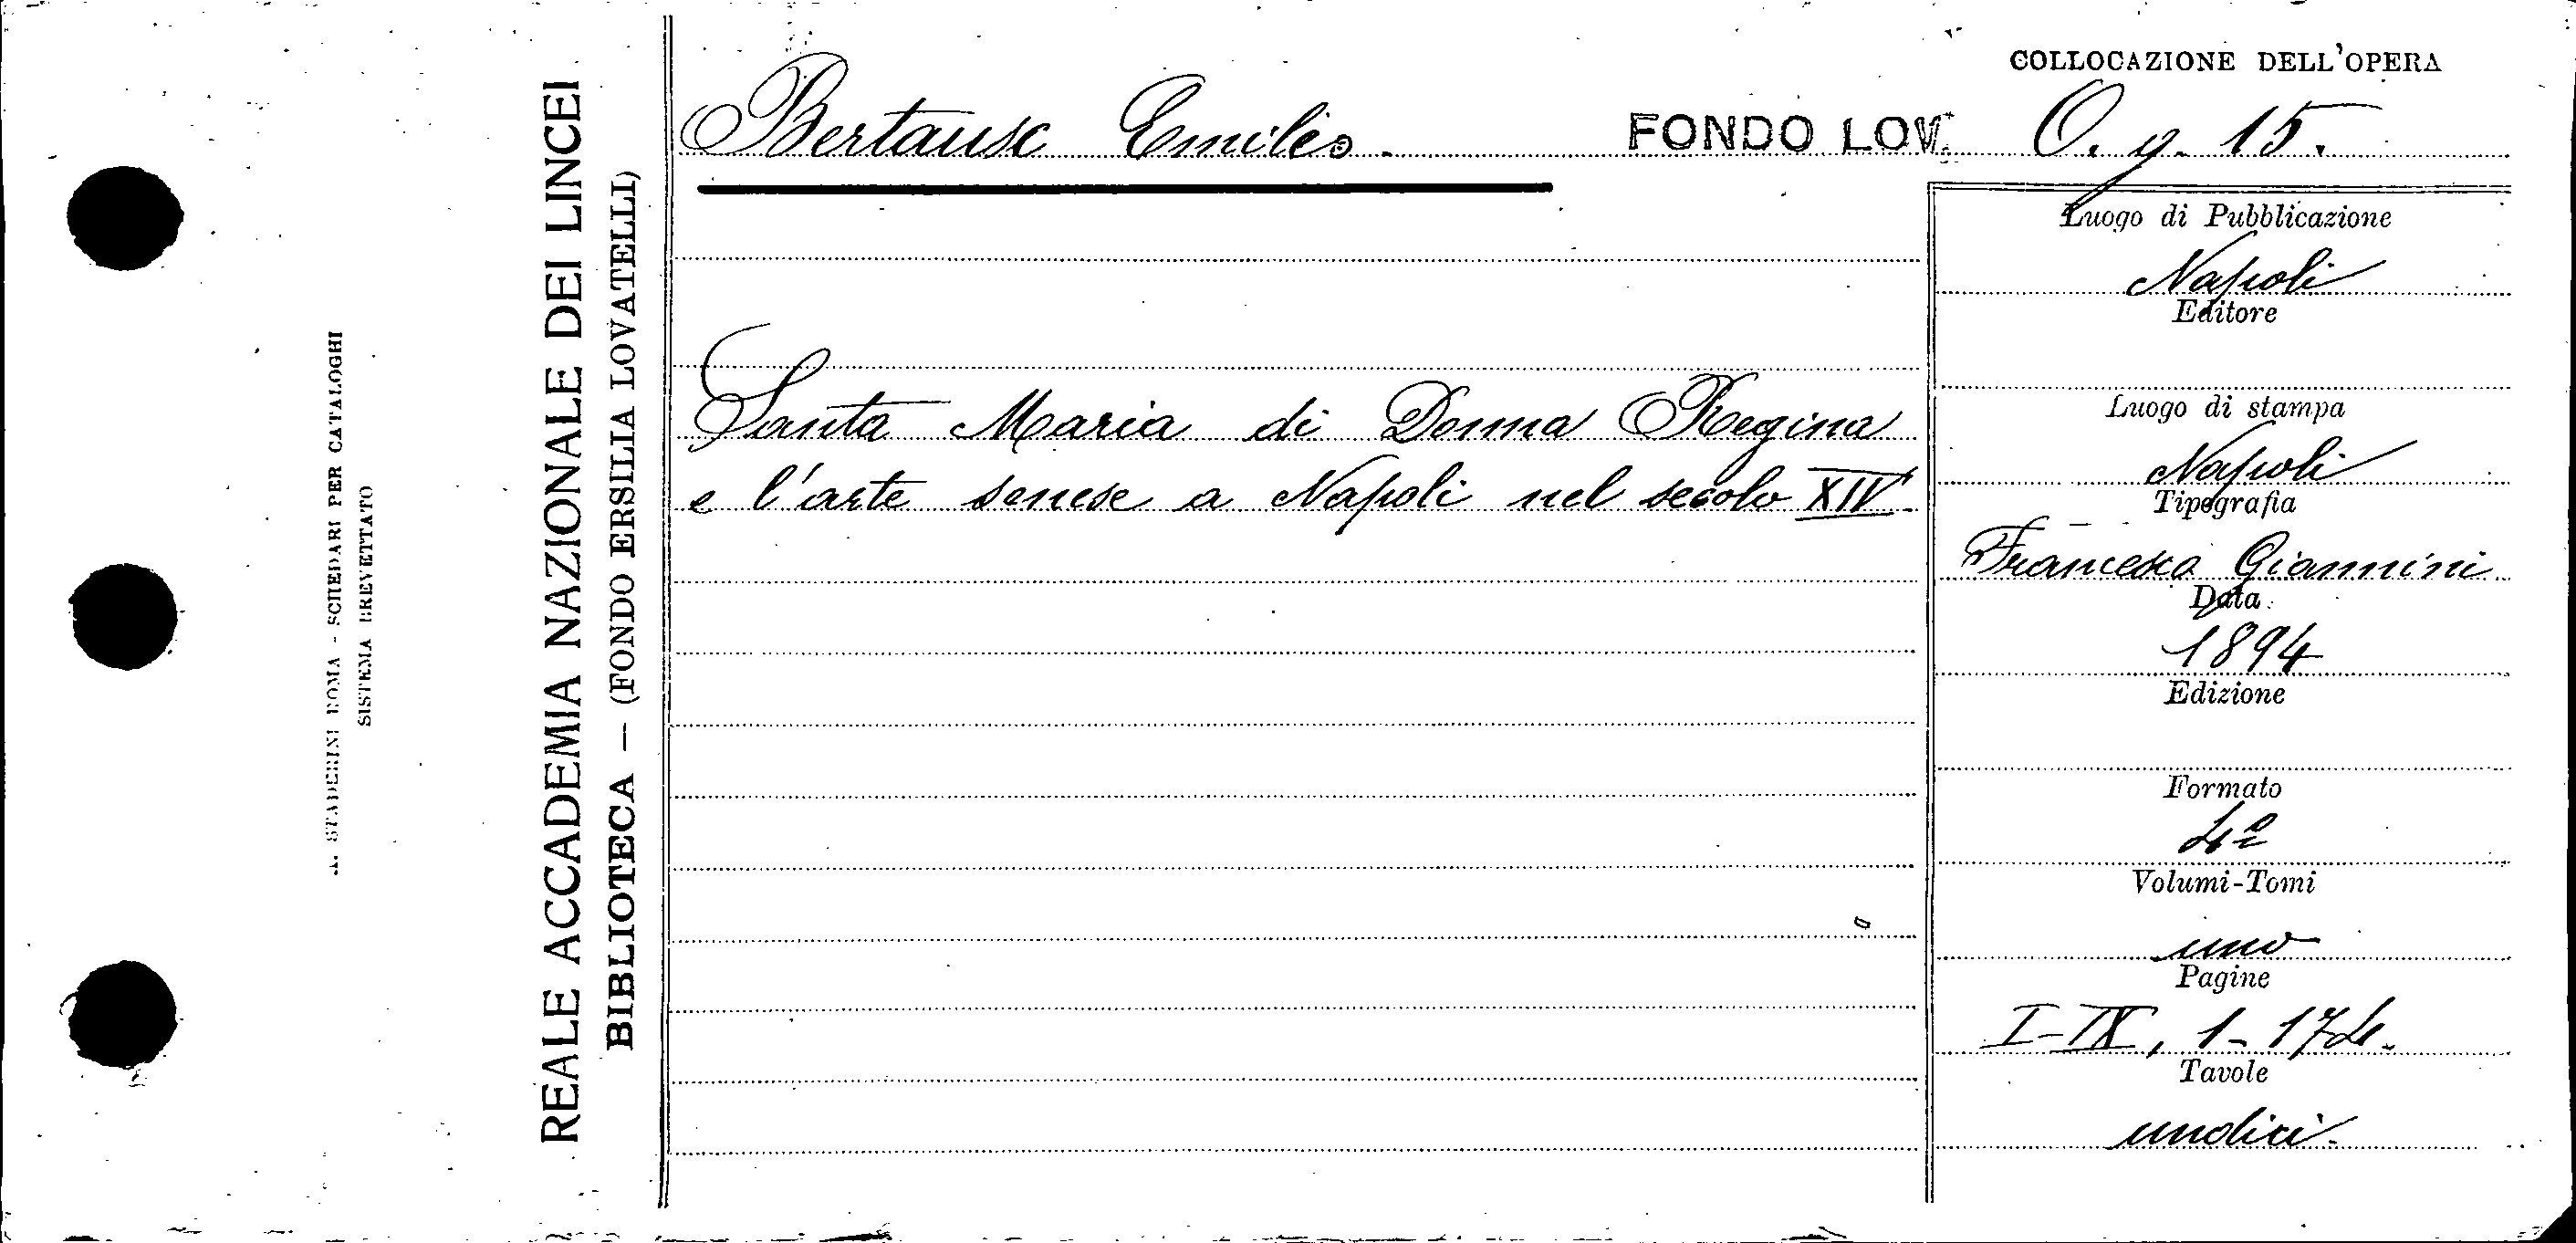 COLLOCAZIONE DELL'OPERA
Bertaux Emilio. FONDO LOV. O. g. 15.
Santa Maria di Donna Regina
e l'arte senese a Napoli nel secolo XIV.
Luogo di Pubblicazione
Napoli
Editore
Luogo di stampa
Napoli
Tipografia
Francesco Giannini
Data
1894
Edizione
Formato
4º
Volumi-Tomi
uno
Pagine
I-IX, 1-174.
Tavole
undici.
REALE ACCADEMIA NAZIONALE DEI LINCEI
BIBLIOTECA — (FONDO ERSILIA LOVATELLI)
A. STADERINI ROMA - SCHEDARI PER CATALOGHI
SISTEMA BREVETTATO